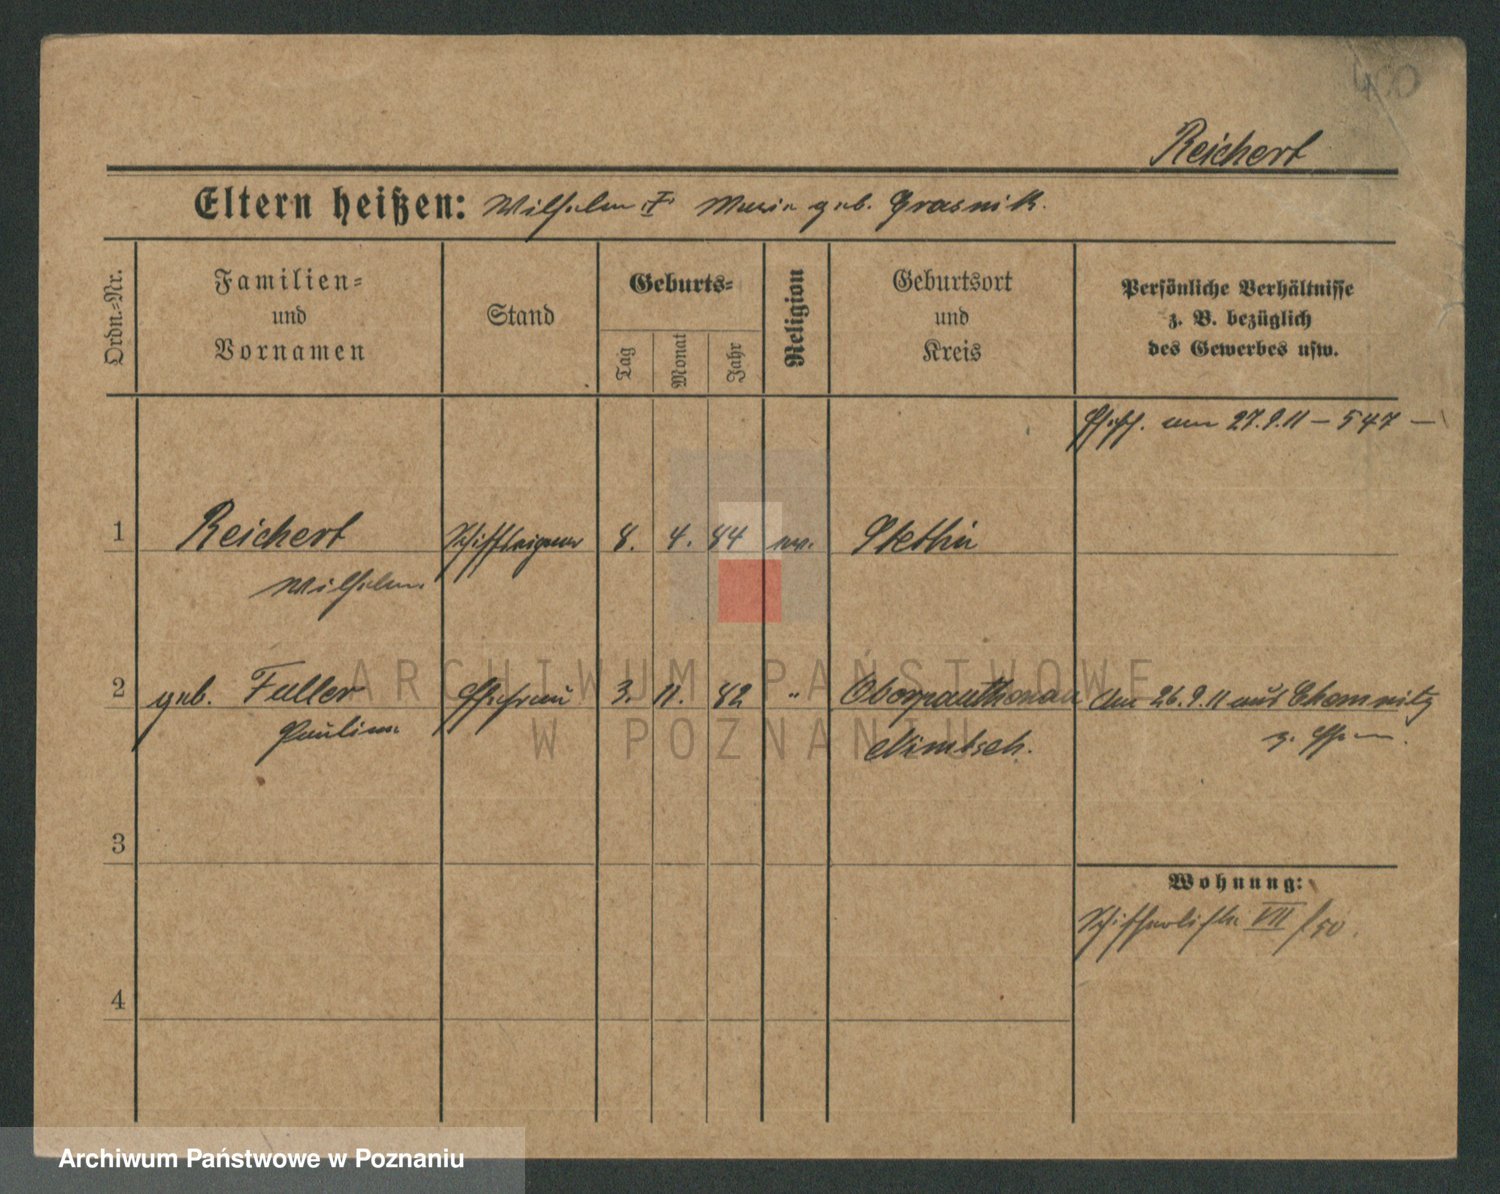 400
Reichert
Eltern heißen: Wilhelm u. Marie geb. Grasnik.
Ordn.-Nr.
Familien=
und
Vornamen
Stand
Geburts=
Tag
Monat
Jahr
Religion
Geburtsort
und
Kreis
Persönliche Verhältnisse
z. B. bezüglich
des Gewerbes usw.
am 27.9.11 – 547 –
1 Reichert Schiffseigner 8. 4. 84 ev. Stettin
Wilhelm
2 geb. Fuller Ehefrau 3. 11. 82 " Am 26.9.11 aus Chemnitz
Pauline Nimtsch.
z. Ehem.
3
Wohnung:
Schifferliste VII/50.
4
ARCHIWUM PAŃSTWOWE
W POZNANIU
Archiwum Państwowe w Poznaniu